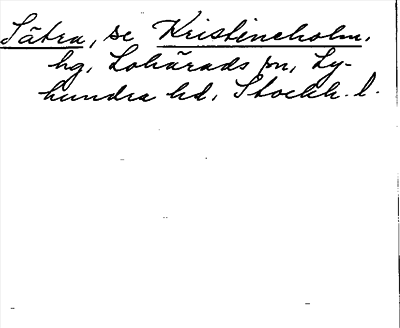 Sätra, se Kristineholm,
hg, Lohärads sn, Ly-
hundra hd, Stockh. l.